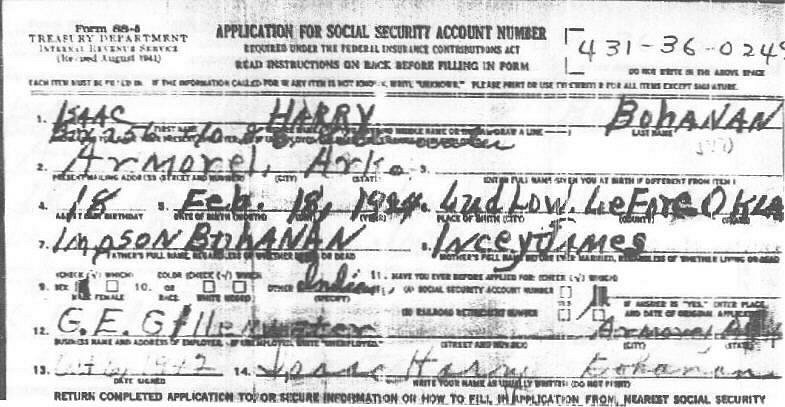 Form SS-5
TREASURY DEPARTMENT
INTERNAL REVENUE SERVICE
(Revised August 1941)
APPLICATION FOR SOCIAL SECURITY ACCOUNT NUMBER
REQUIRED UNDER THE FEDERAL INSURANCE CONTRIBUTIONS ACT
READ INSTRUCTIONS ON BACK BEFORE FILLING IN FORM
431-36-024
DO NOT WRITE IN THE ABOVE SPACE
EACH ITEM MUST BE FILLED IN. IF THE INFORMATION CALLED FOR IN ANY ITEM IS NOT KNOWN, WRITE "UNKNOWN." PLEASE PRINT OR USE TYPEWRITER FOR ALL ITEMS EXCEPT SIGNATURE.
1. ISAAC HARRY BOHANAN
LAST NAME
Box 256
2. Armorel, Ark. 3.
PRESENT MAILING ADDRESS (STREET AND NUMBER) (CITY) (STATE) ENTER FULL NAME GIVEN YOU AT BIRTH IF DIFFERENT FROM ITEM 1
4. 18 5. Feb. 18, 1924. LUDLOW, LeFore OKLA
AGE AT BIRTHDAY DATE OF BIRTH (MONTH) (DAY) (YEAR) PLACE OF BIRTH (CITY) (COUNTY) (STATE)
7. IMPSON BOHANAN 8. INCEY JAMES
FATHER'S FULL NAME, REGARDLESS OF WHETHER LIVING OR DEAD MOTHER'S FULL NAME BEFORE EVER MARRIED, REGARDLESS OF WHETHER LIVING OR DEAD
(CHECK (√) WHICH) COLOR (CHECK (√) WHICH)
9. SEX MALE FEMALE 10. OR RACE WHITE NEGRO OTHER Indian (SPECIFY)
11. HAVE YOU EVER BEFORE APPLIED FOR: (CHECK (√) WHICH)
(A) SOCIAL SECURITY ACCOUNT NUMBER
(B) RAILROAD RETIREMENT NUMBER
IF ANSWER IS "YES," ENTER PLACE AND DATE OF ORIGINAL APPLICATION
12. G. E. Gillenwater Armorel
BUSINESS NAME AND ADDRESS OF EMPLOYER. IF UNEMPLOYED, WRITE "UNEMPLOYED" (STREET AND NUMBER) (CITY) (STATE)
13. 1942 14. Isaac Harry Bohanan
DATE SIGNED WRITE YOUR NAME AS USUALLY WRITTEN (DO NOT PRINT)
RETURN COMPLETED APPLICATION TO, OR SECURE INFORMATION ON HOW TO FILL IN APPLICATION FROM, NEAREST SOCIAL SECURITY